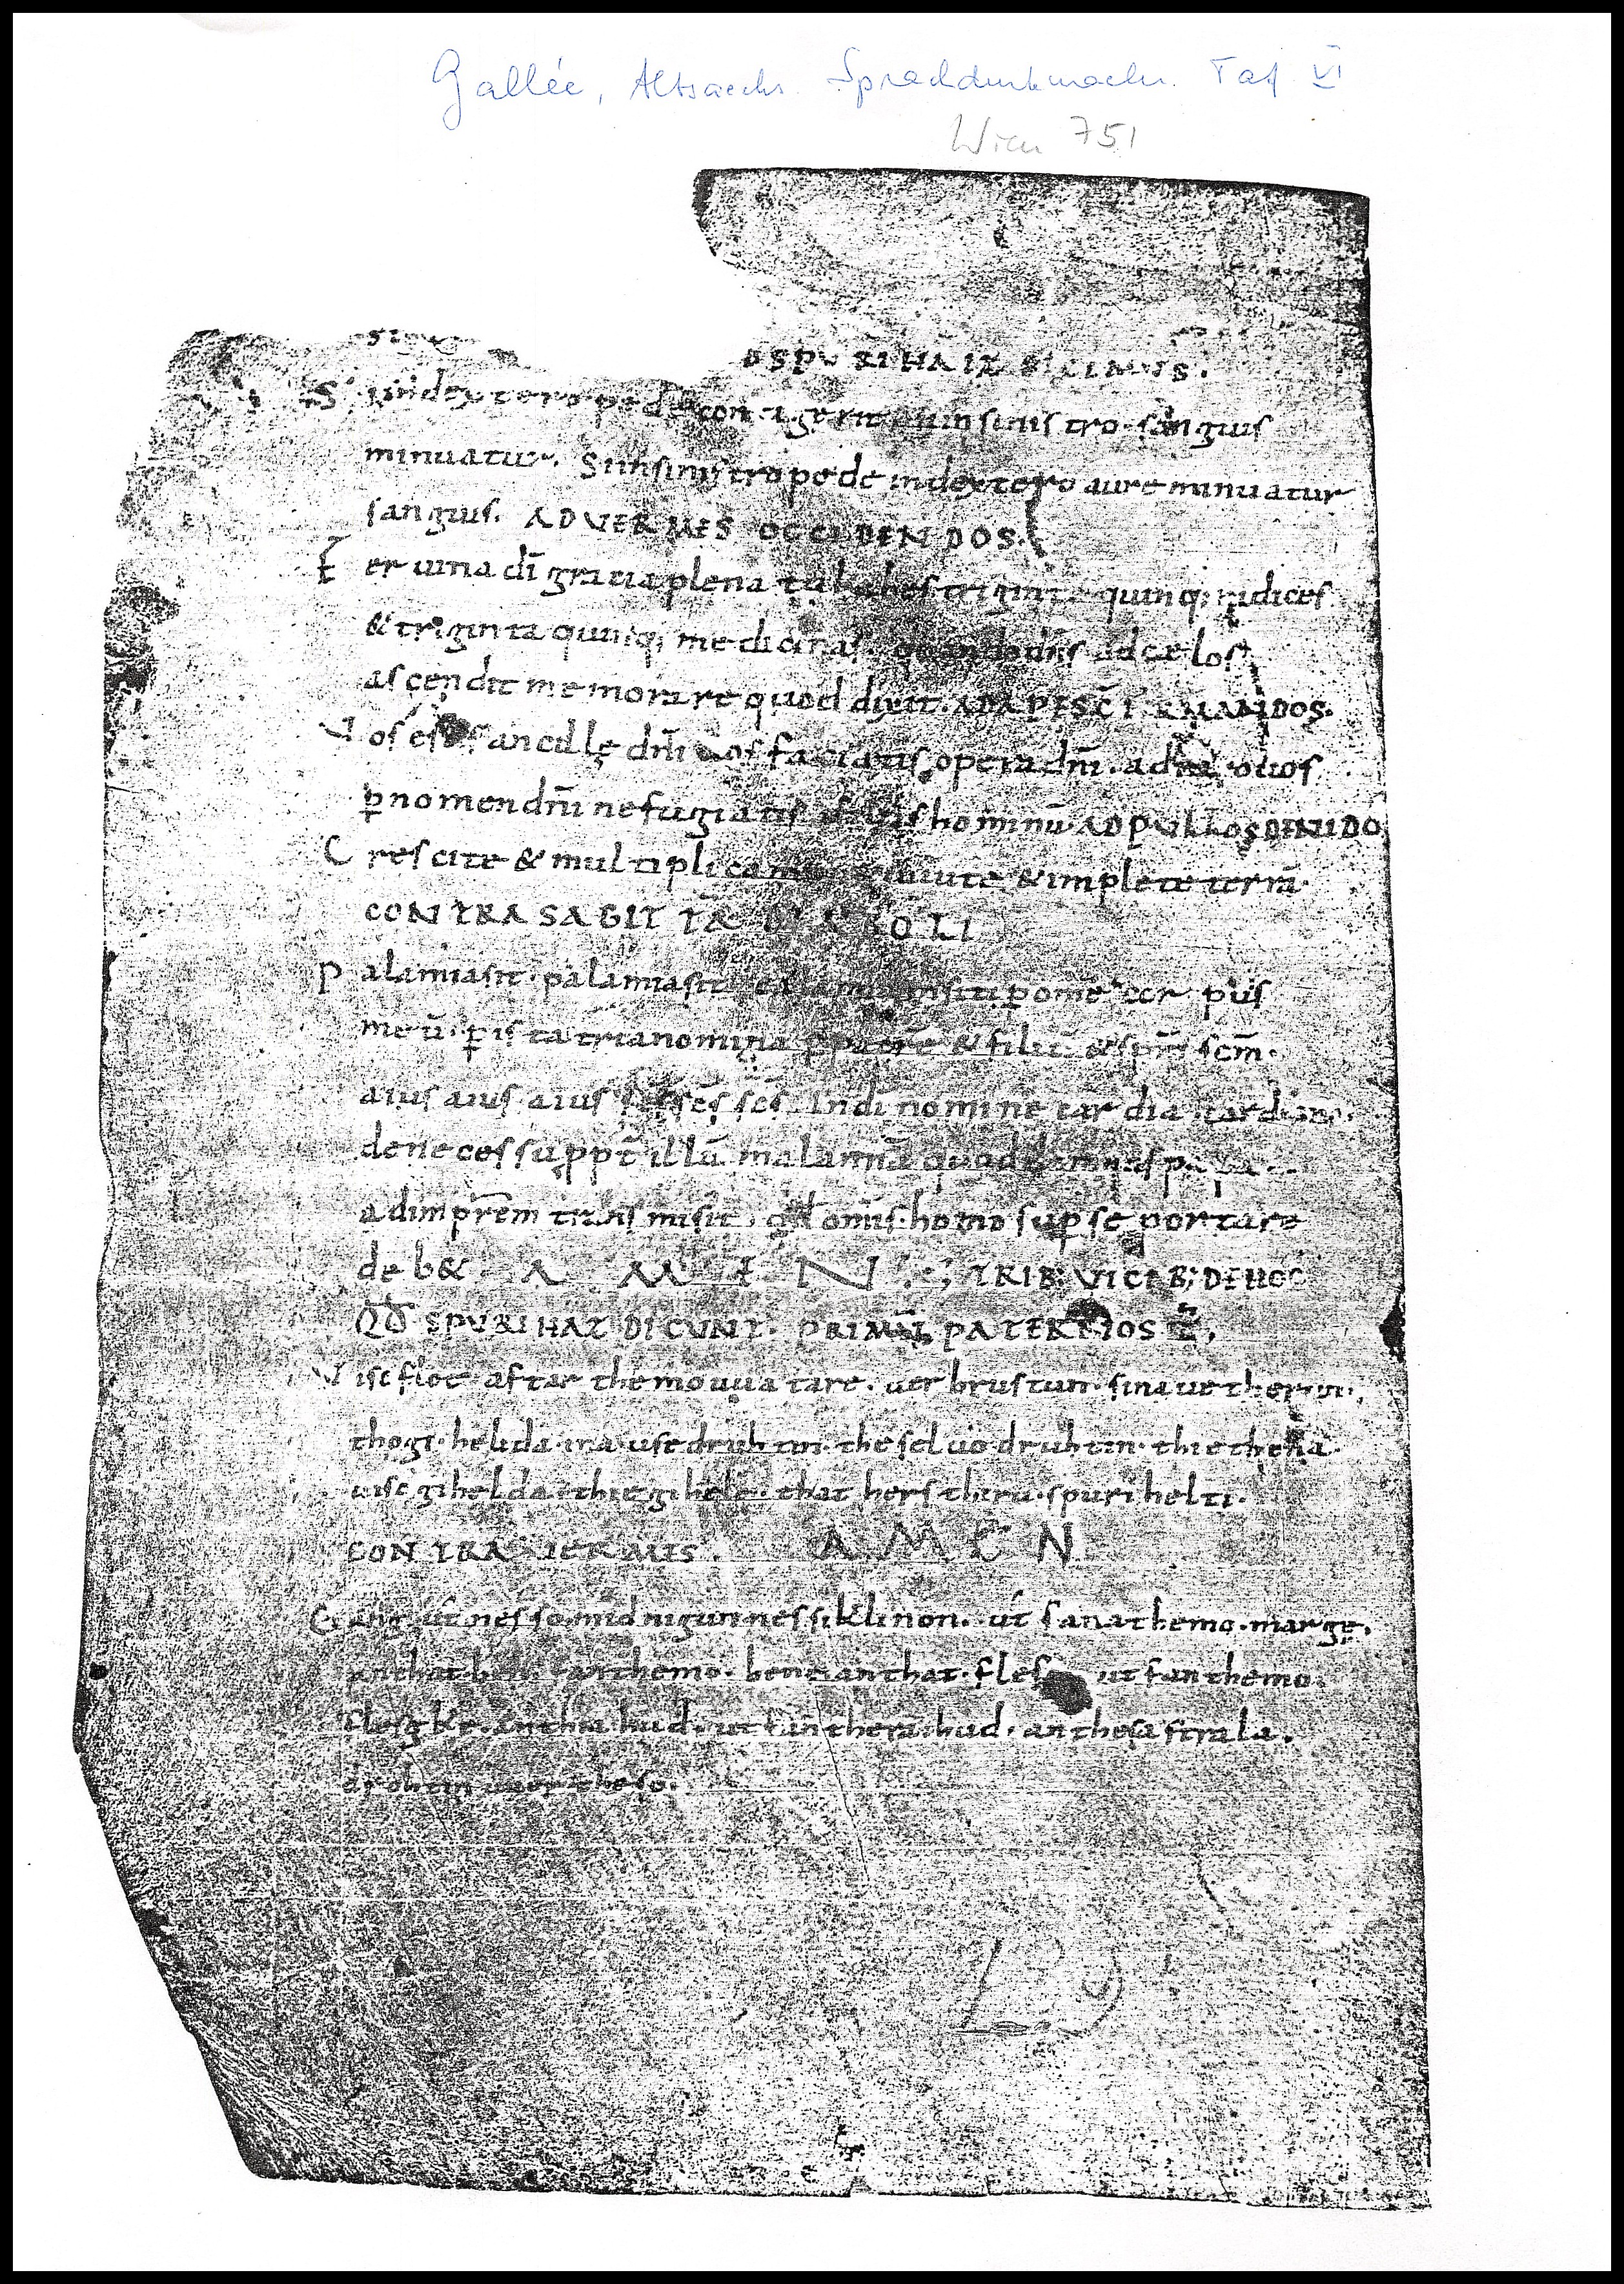 Gallée, Altsaechs. Sprachdenkmaeler. Taf VI
Wien 751
SPURIHAIZ DICIMUS.
Si in dextero pede contigerit in sinistro sanguis
minuatur. Si in sinistro pede in dextero aure minuatur
sanguis. AD VERMES OCCIDENDOS.
Feruina dī gratia plena tu habes triginta quinq; indices
& triginta quinq; medicinas. quando dn̄s ad cęlos
ascendit memorare quod dixit. AD APES CŌFIRMANDOS.
Vos estis ancillę dn̄i vos faciatis opera dn̄i. adiuro vos
ꝑ nomen dn̄i ne fugiatis filiis hominū. AD PULLOS DE NIDO
Crescite & multiplicamini & vivite & implete terrā
CONTRA SAGITTĀ DIABOLI
Palamiasit. palamiasit
meū. ꝑ ista tria nomina ꝑ patrē & filiū & sp̄m scm̄.
aius aius aius scs̄ scs̄ scs̄. In dī nomine cardia cardiani.
de necessu ppt̄ illū malannū quod
ad imprēm transmisit. qđ omis homo sup se portare
deb& A M E N. TRIB; VICIB; DE HOC
QĐ SPURIHAZ DICUNT. PRIMŪ PATER NOSTER.
Visc flot aftar themo uuatare. uerbrustun. sina uetherun.
tho gi. helida. ina. use druhtin. the seluo druhtin. thie thena
uisc gihelda. thie gihele. that hers theru. spurihelti.
CONTRA VERMES. AMEN
Gang ūt nesso mid nigun nessiklinon. ūt fana themo. marge.
an that ben. fan themo. bene an that. flesg ut fan themo
flesgke. an thia hud. ut fan thera. hud. an thesa strala.
drohtin uuerthe so.